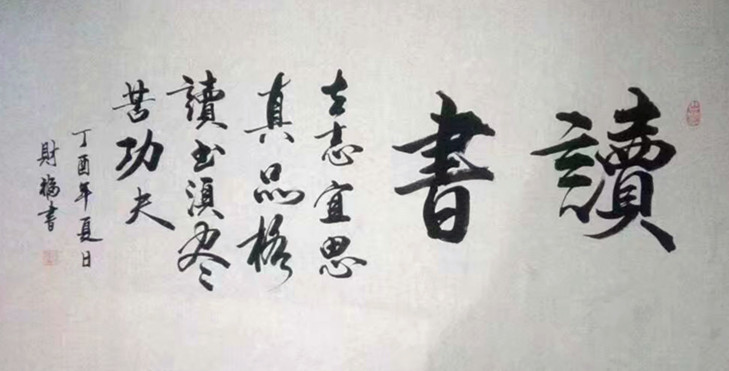 讀書
立志宜思
真品格
讀书須尽
苦功夫
丁酉年夏日
財福書